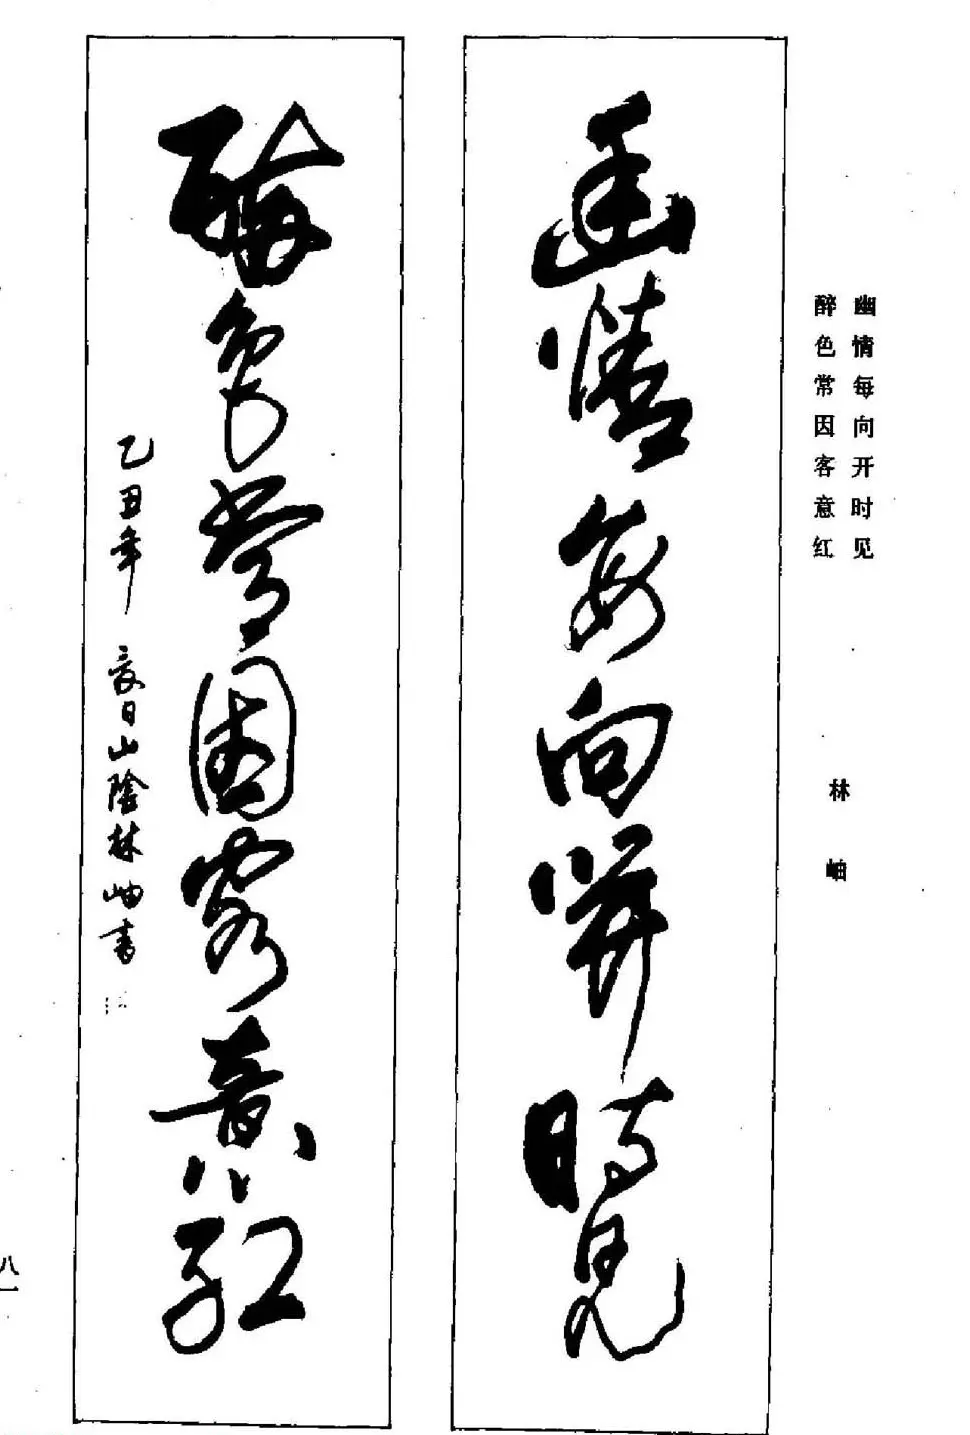 幽情每向开时见
醉色常因客意红
林岫
幽情每向開時見
醉色常因客意紅
乙丑年 夏日山陰林岫書
八一